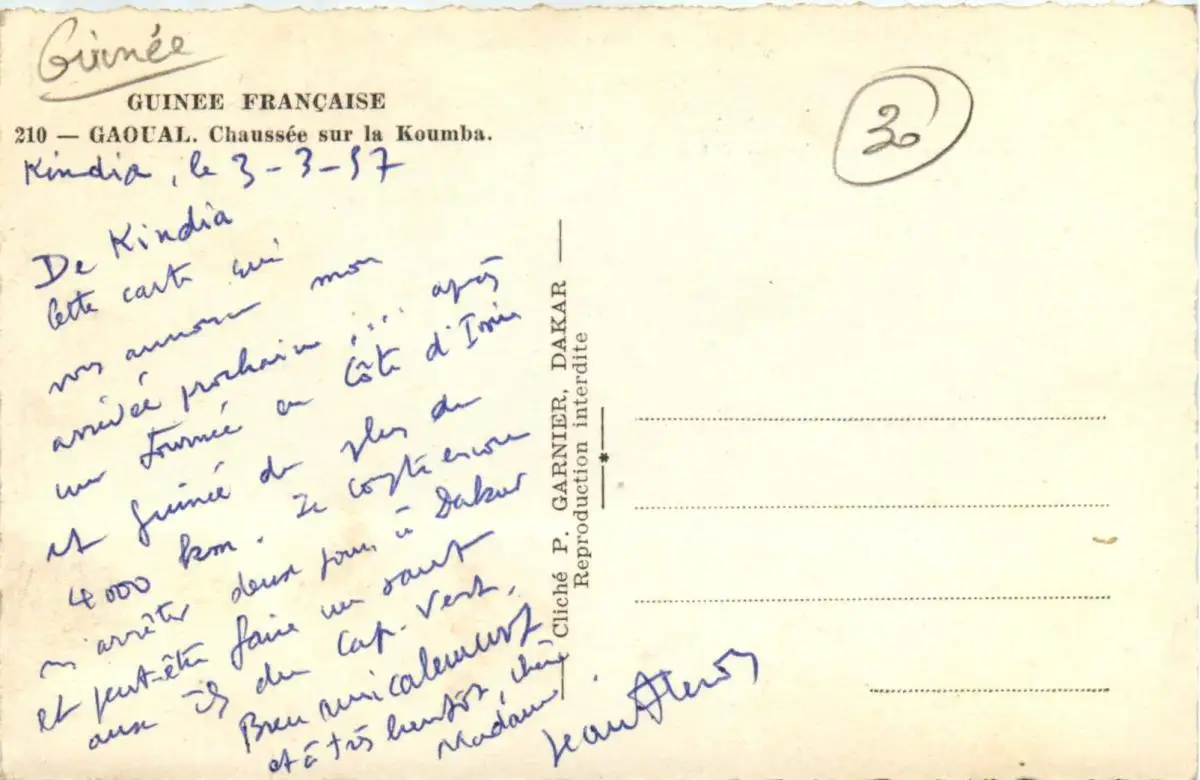 Guinée
GUINEE FRANÇAISE
210 — GAOUAL. Chaussée sur la Koumba.
30
Kindia, le 3-3-57
De Kindia
cette carte qui
vous annonce mon
arrivée prochaine ... après
une tournée en Côte d'Ivoire
et Guinée de plus de
4000 km. Je compte encore
m'arrêter deux jours à Dakar
et peut-être faire un saut
aux îles du Cap-Vert.
Bien amicalement
et à très bientôt, chère
Madame.
Jean
Cliché P. GARNIER, DAKAR —
Reproduction interdite
—*—